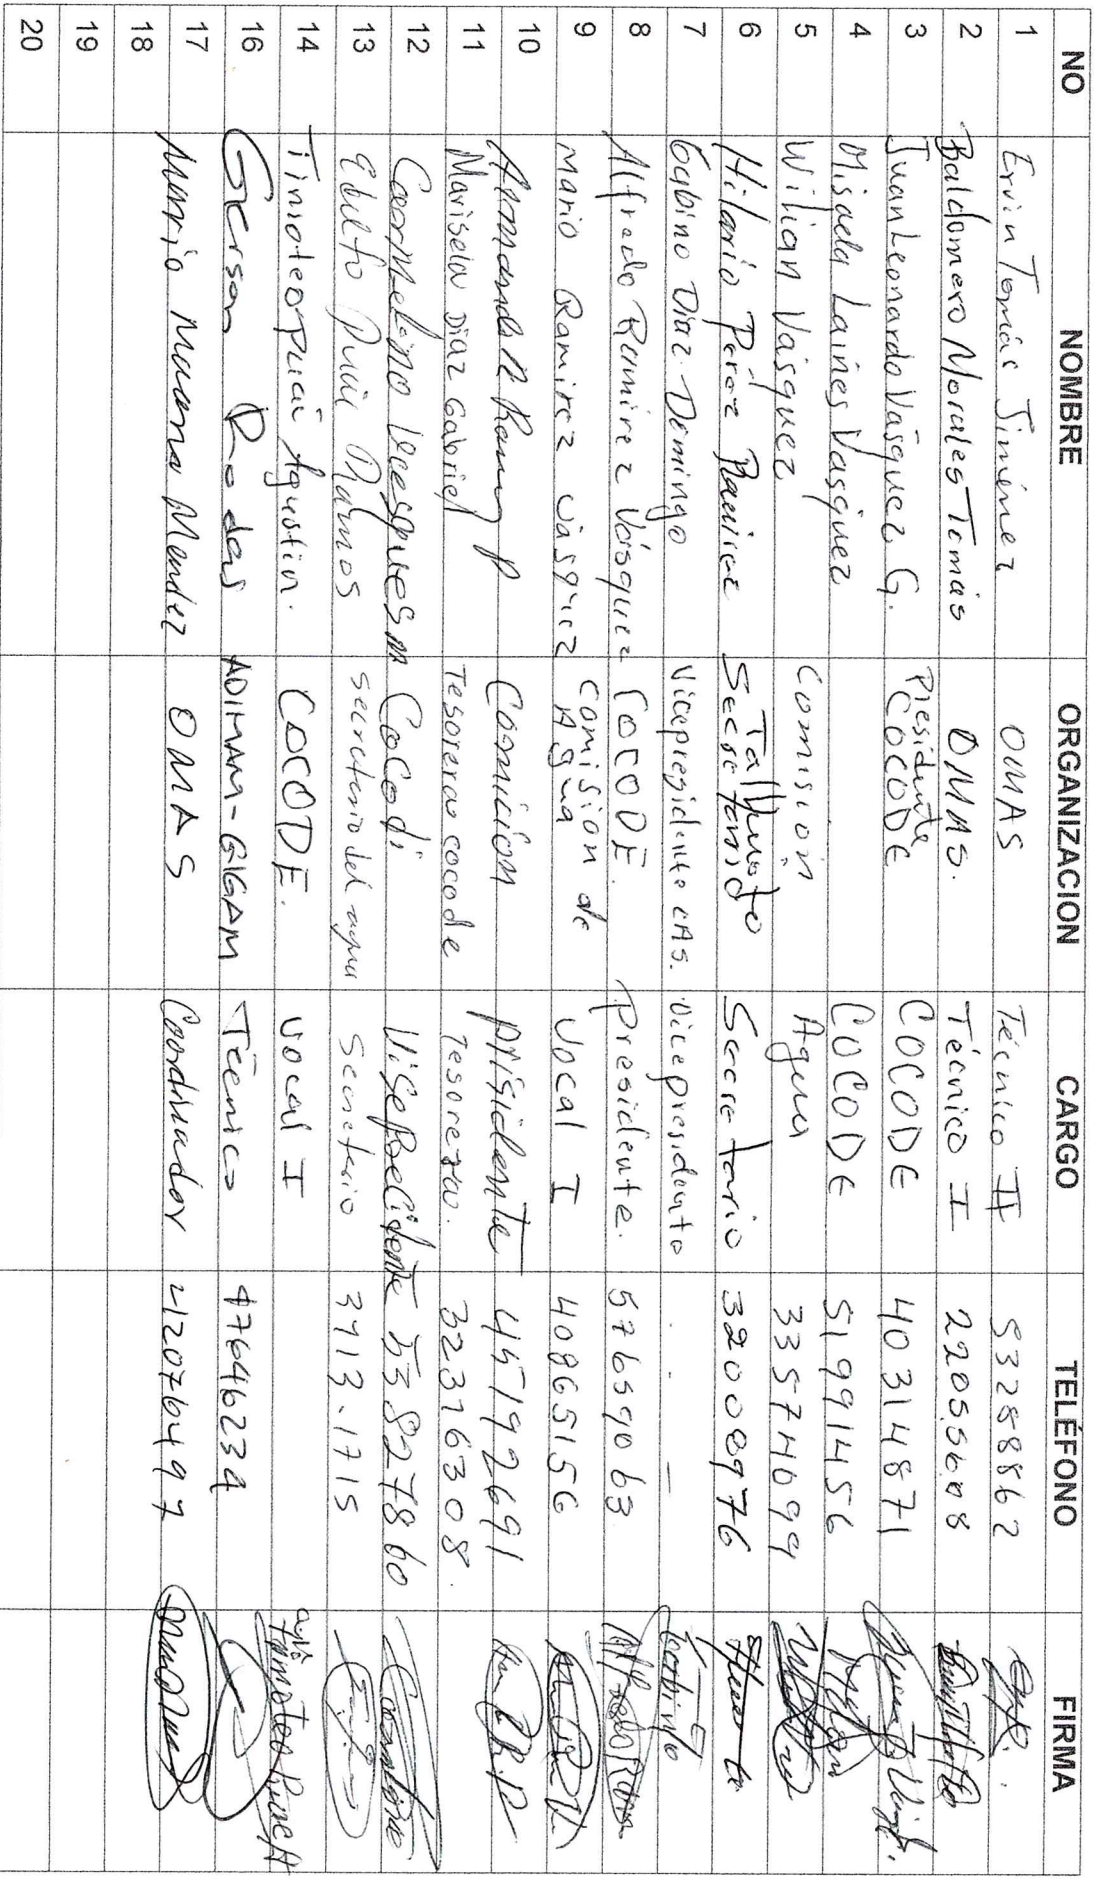 NO NOMBRE ORGANIZACION CARGO TELÉFONO FIRMA
1 Ervin Tomás Jiménez OMAS Técnico II 53288862
2 Baldomero Morales Tomás OMAS. Técnico I 22055608
3 Juan Leonardo Vásquez G. Presidente COCODE COCODE 40314871
4 Misaela Laines Vasquez COCODE 51991456
5 Wilian Vásquez Comisión Agua 33574099
6 Hilario Pérez Ramirez Secretario Secretario 32008976
7 Gabino Diaz Domingo Vicepresidente CAS. Vicepresidente - Gabino
8 Alfredo Ramirez Vásquez COCODE. Presidente. 57659063
9 Mario Ramirez Vasquez Comision de Agua Vocal I 40865156
10 Comicion prisidente 45192691
11 Marisela Diaz Gabriel Tesorera cocode Tesorera. 32376308.
12 CoCodi 53827860
13 Ramos secretario del agua Secretario 3713-1715
14 Timoteo Agustin. COCODE. Vocal I
15
16 Gerson Rodas ADIMAM-GIGAM Técnico 47646234
17 Mendez OMAS Coordinador 42076497
18
19
20